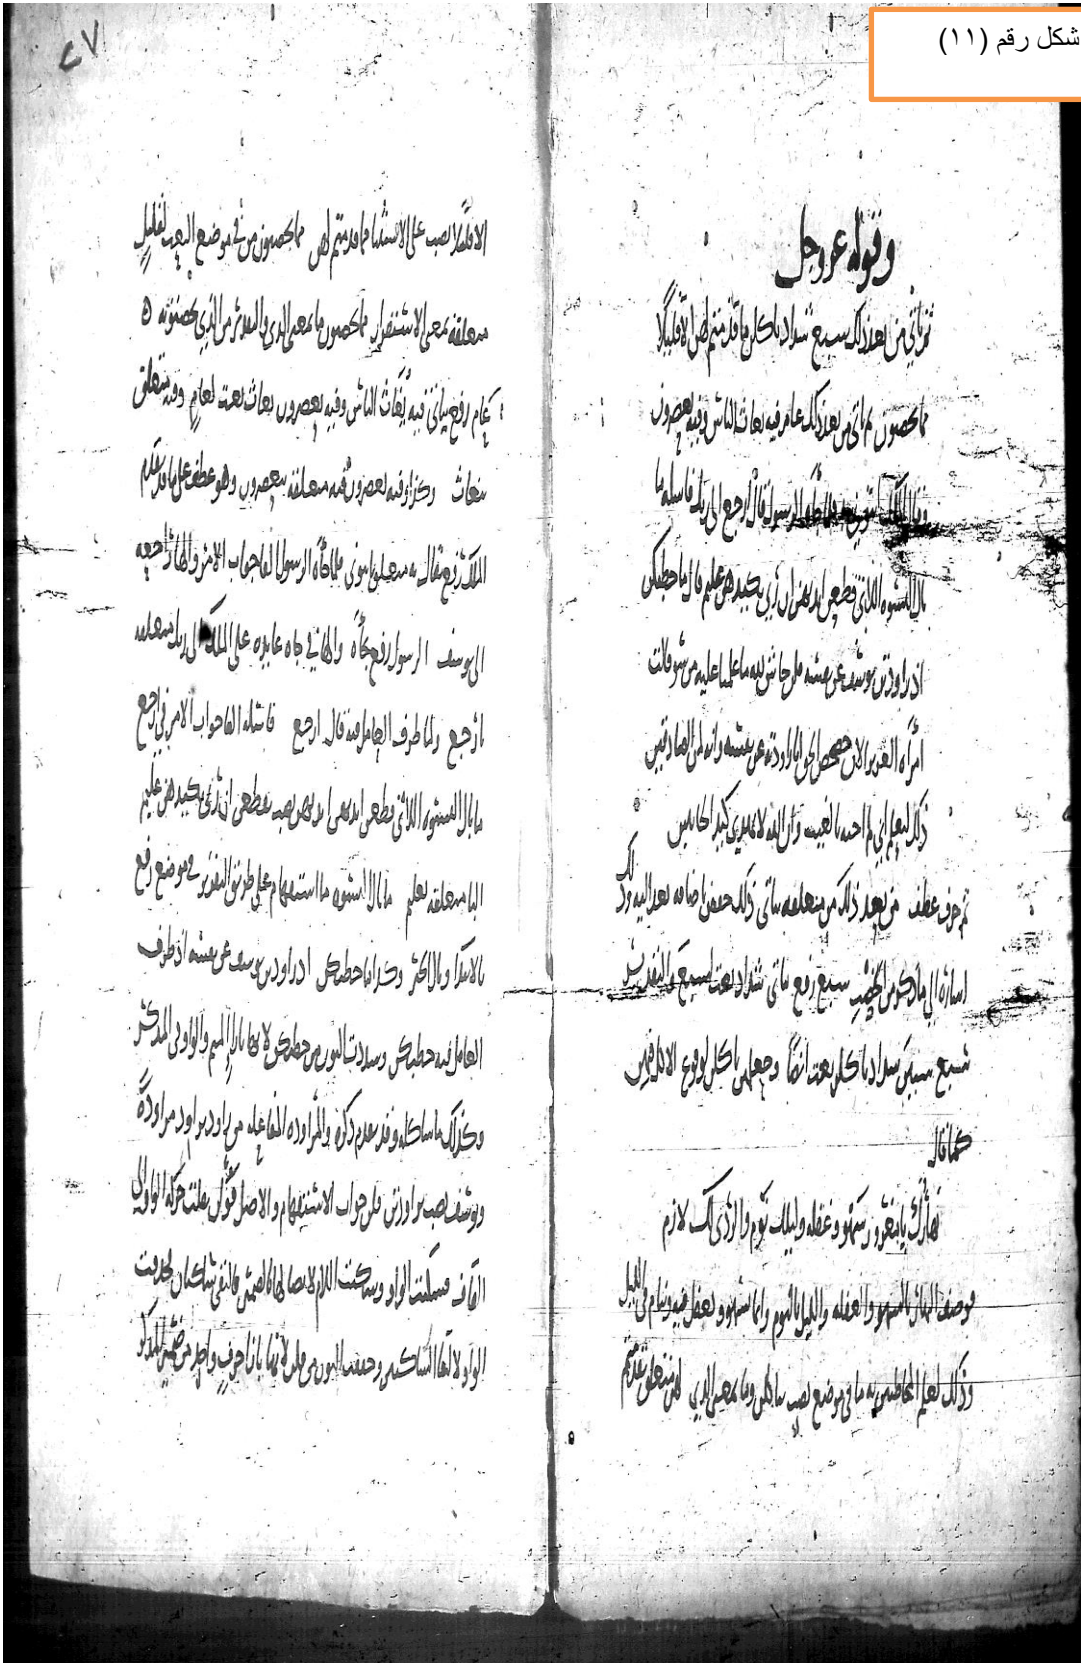 شكل رقم (١١)
وقوله عز وجل
ثم ياتي من بعد ذلك سبع شداد ياكلن ما قدمتم لهن الا قليلا
مما تحصنون ثم ياتي من بعد ذلك عام فيه يغاث الناس وفيه يعصرون
وقال الملك ائتوني به فلما جاه الرسول قال ارجع الى ربك فاسله ما
بال النسوه اللاتي قطعن ايديهن ان ربي بكيدهن عليم قال ما خطبكن
اذ راودتن يوسف عن نفسه قلن حاش لله ما علمنا عليه من سو قالت
امراه العزيز الان حصحص الحق انا راودته عن نفسه وانه لمن الصادقين
ذلك ليعلم اني لم اخنه بالغيب وان الله لا يهدي كيد الخاينين
ثم حرف عطف من بعد ذلك من متعلقه بياتي ذلك خفض باضافه بعد اليه وذلك
اشاره الى ما ذكر من الخصب سبع رفع بياتي شداد نعت لسبع والتقدير
سبع سنين شداد ياكلن نعت ايضا وجعلهن ياكلن لوقوع الاكل فيهن
كما قال
نهارك يا مغرور سهو وغفله وليلك نوم والردى لك لازم
فوصف النهار بالسهو والغفله والليل بالنوم وانما يسهو ويغفل فيه وينام في الليل
وذلك لعلم المخاطبين به ما في موضع نصب بياكلن وما بمعنى الذي لهن متعلق بقدمتم
٢٧
الا قليلا نصب على الاستثنا مما قدمتم لهن مما تحصنون من في موضع النعت لقليل
متعلقه بمعنى الاستقرار مما تحصنون ما بمعنى الذي والتقدير من الذي تحصنونه ه
عام رفع بياتي فيه يغاث الناس وفيه يعصرون يغاث نعت لعام وفيه متعلق
بيغاث وكذا وفيه يعصرون فيه متعلقه بيعصرون وهو عطف على ما قد تقدم
الملك رفع بقال به متعلق بايتوني فلما جاه الرسول الفا جواب الامر والها راجعه
الى يوسف الرسول رفع بجاه والها في جاه عايده على الملك الى ربك متعلقه
بارجع ولما ظرف العامل فيه قال ارجع فاسله الفا جواب الامر في ارجع
ما بال النسوه اللاتي قطعن ايديهن ايديهن نصب بقطعن ان ربي بكيدهن عليم
البا متعلقه بعليم ما بال النسوه ما استفهام على طريق التقدير في موضع رفع
بالابتدا وبال الخبر وكذا ما خطبكن اذ راودتن يوسف عن نفسه اذ ظرف
العامل فيه خطبكن وشددت النون من خطبكن لانها بازا الميم والواو في المذكر
وكذلك ما شاكله وقد تقدم ذكره والمراوده المفاعله من راود يراود مراودة
ويوسف نصب براودتن قلن جواب الاستفهام والاصل قولن نقلت حركه الواو الى
القاف فسكنت الواو وسكنت اللام لاتصالها بالضمير فالتقى ساكنان فحذفت
الواو لالتقا الساكنين وخففت النون من قلن لانها بازا حرف واحد من ضمير المذكر